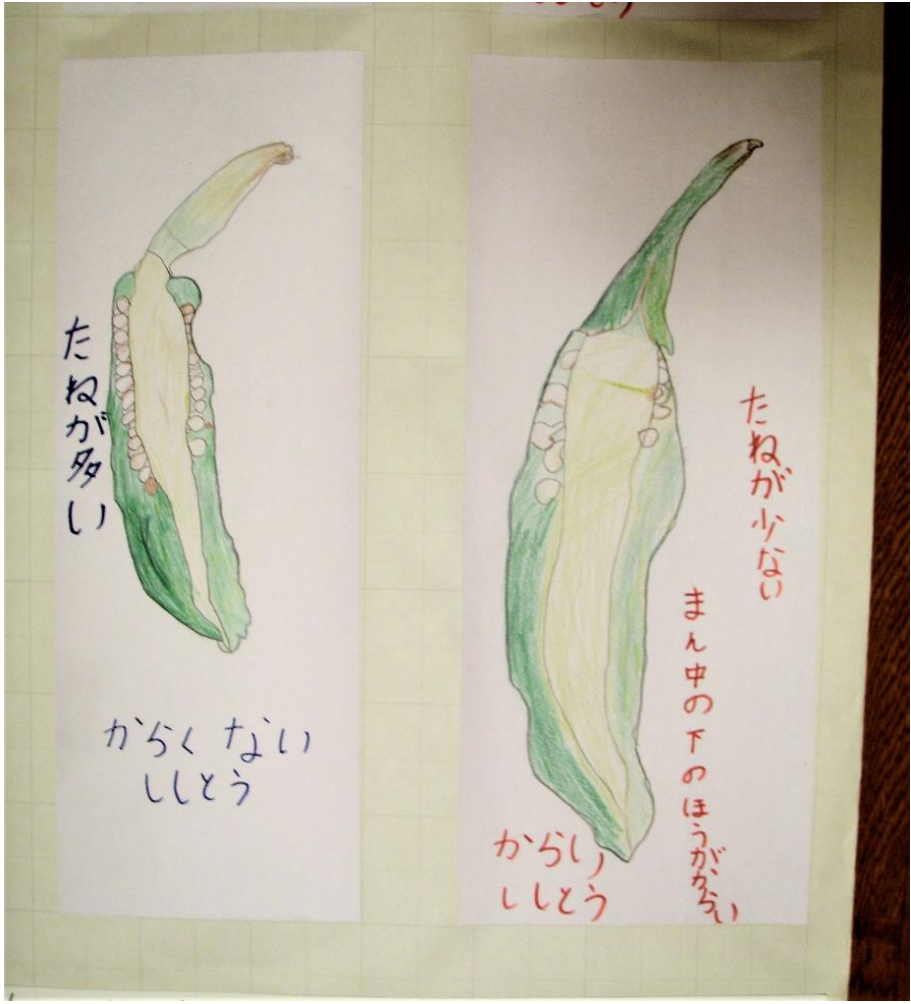 たねが多い
からくない
ししとう
たねが少ない
まん中の下のほうがからい
からい
ししとう